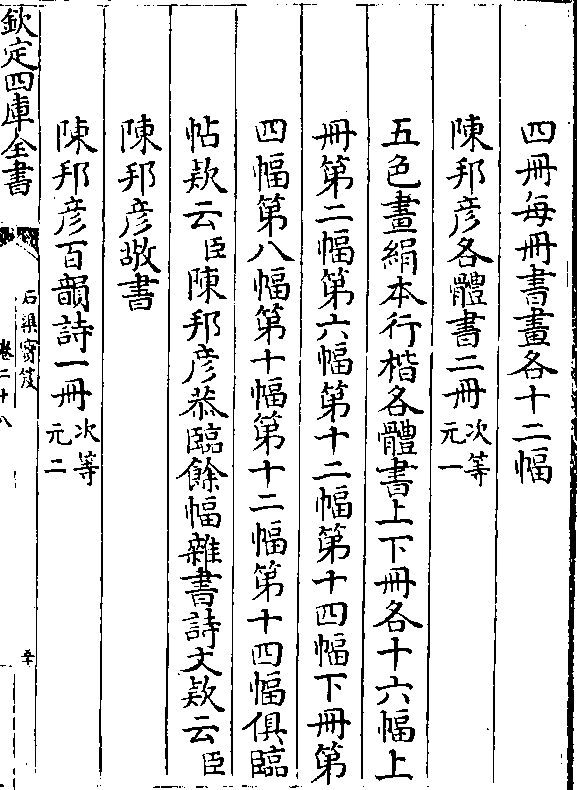 四冊每冊書畫各十二幅
陳邦彦各體書二冊次等元一
五色畫絹本行楷各體書上下冊各十六幅上
冊第二幅第六幅第十二幅第十四幅下冊第
四幅第八幅第十幅第十二幅第十四幅俱臨
帖款云臣陳邦彦恭臨餘幅雜書詩文款云臣
陳邦彦敬書
陳邦彦百韻詩一冊次等元二
欽定四庫全書
石渠寶笈
卷二十八